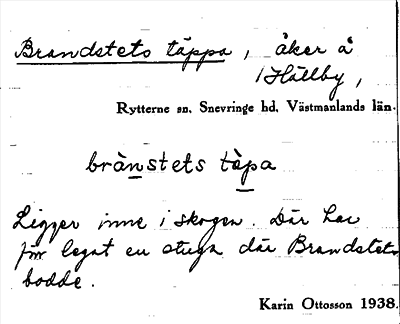 Brandstets täppa, åker å
Hällby,
Rytterne sn. Snevringe hd. Västmanlands län.
brànstets tàpa
Ligger inne i skogen. Där har
förr legat en stuga där Brandstets
bodde.
Karin Ottosson 1938.